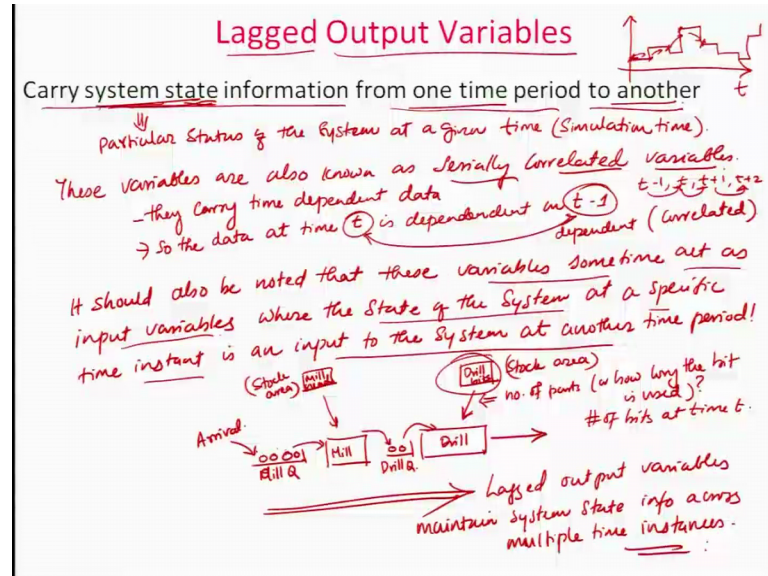 Lagged Output Variables
Carry system state information from one time period to another
t
Particular Status of the System at a given time (Simulation time).
These variables are also known as Serially Correlated variables.
t-1, t, t+1, t+2
- they carry time dependent data
→ So the data at time t is dependendent on t-1
dependent (correlated)
It should also be noted that these variables sometime act as
input variables where the State of the System at a specific
time instant is an input to the System at another time period!
(Stock area) Mill
Drill bits (Stock area)
← no. of parts (or how long the bit
is used)?
# of bits at time t.
Arrival.
Mill Drill
Mill Q Drill Q.
Lagged output variables
maintain System State info across
multiple time instances.